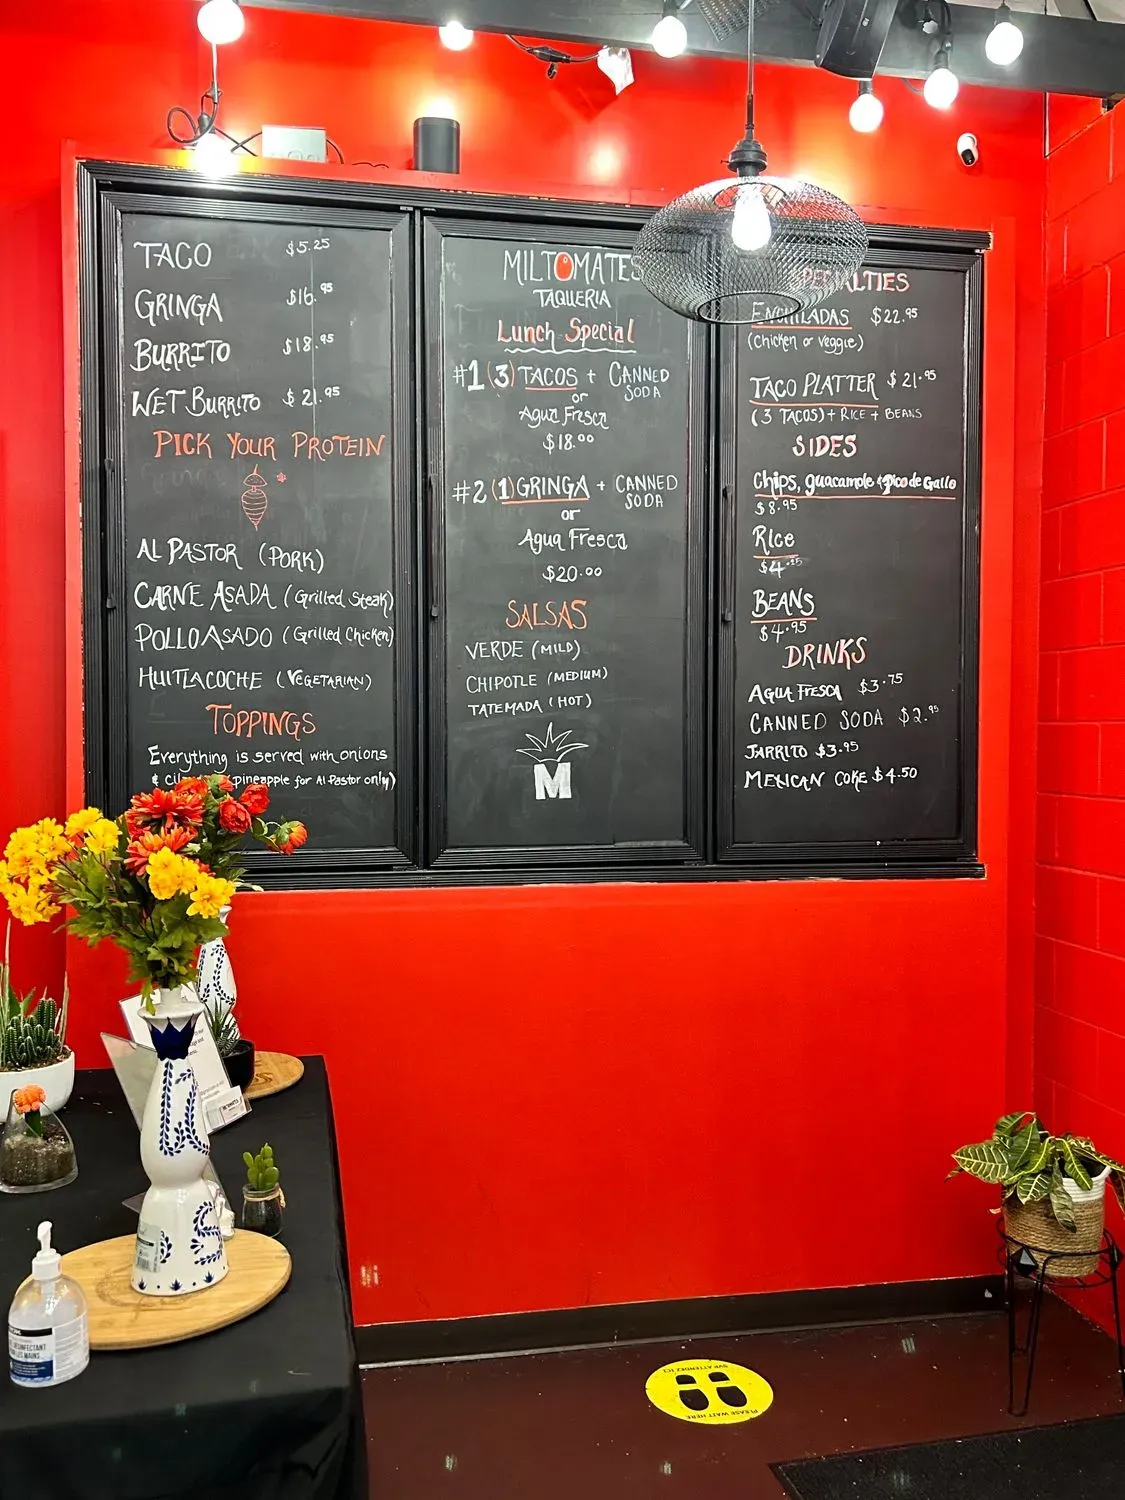 TACO $5.25
GRINGA $16.95
BURRITO $18.95
WET BURRITO $21.95
PICK YOUR PROTEIN
AL PASTOR (PORK)
CARNE ASADA (Grilled Steak)
POLLO ASADO (Grilled Chicken)
HUITLACOCHE (VEGETARIAN)
TOPPINGS
Everything is served with onions
pineapple for Al Pastor only)
MILTOMATES
TAQUERIA
Lunch Special
#1 (3) TACOS + CANNED SODA
or
Agua Fresca
$18.00
#2 (1) GRINGA + CANNED SODA
or
Agua Fresca
$20.00
SALSAS
VERDE (MILD)
CHIPOTLE (MEDIUM)
TATEMADA (HOT)
M
ENCHILADAS $22.95
(Chicken or Veggie)
TACO PLATTER $21.95
(3 TACOS) + RICE + BEANS
SIDES
Chips, guacamole & Pico de Gallo
$8.95
Rice
BEANS
$4.95
DRINKS
AGUA FRESCA $3.75
CANNED SODA $2.95
JARRITO $3.95
MEXICAN COKE $4.50
SVP ATTENDEZ ICI
PLEASE WAIT HERE